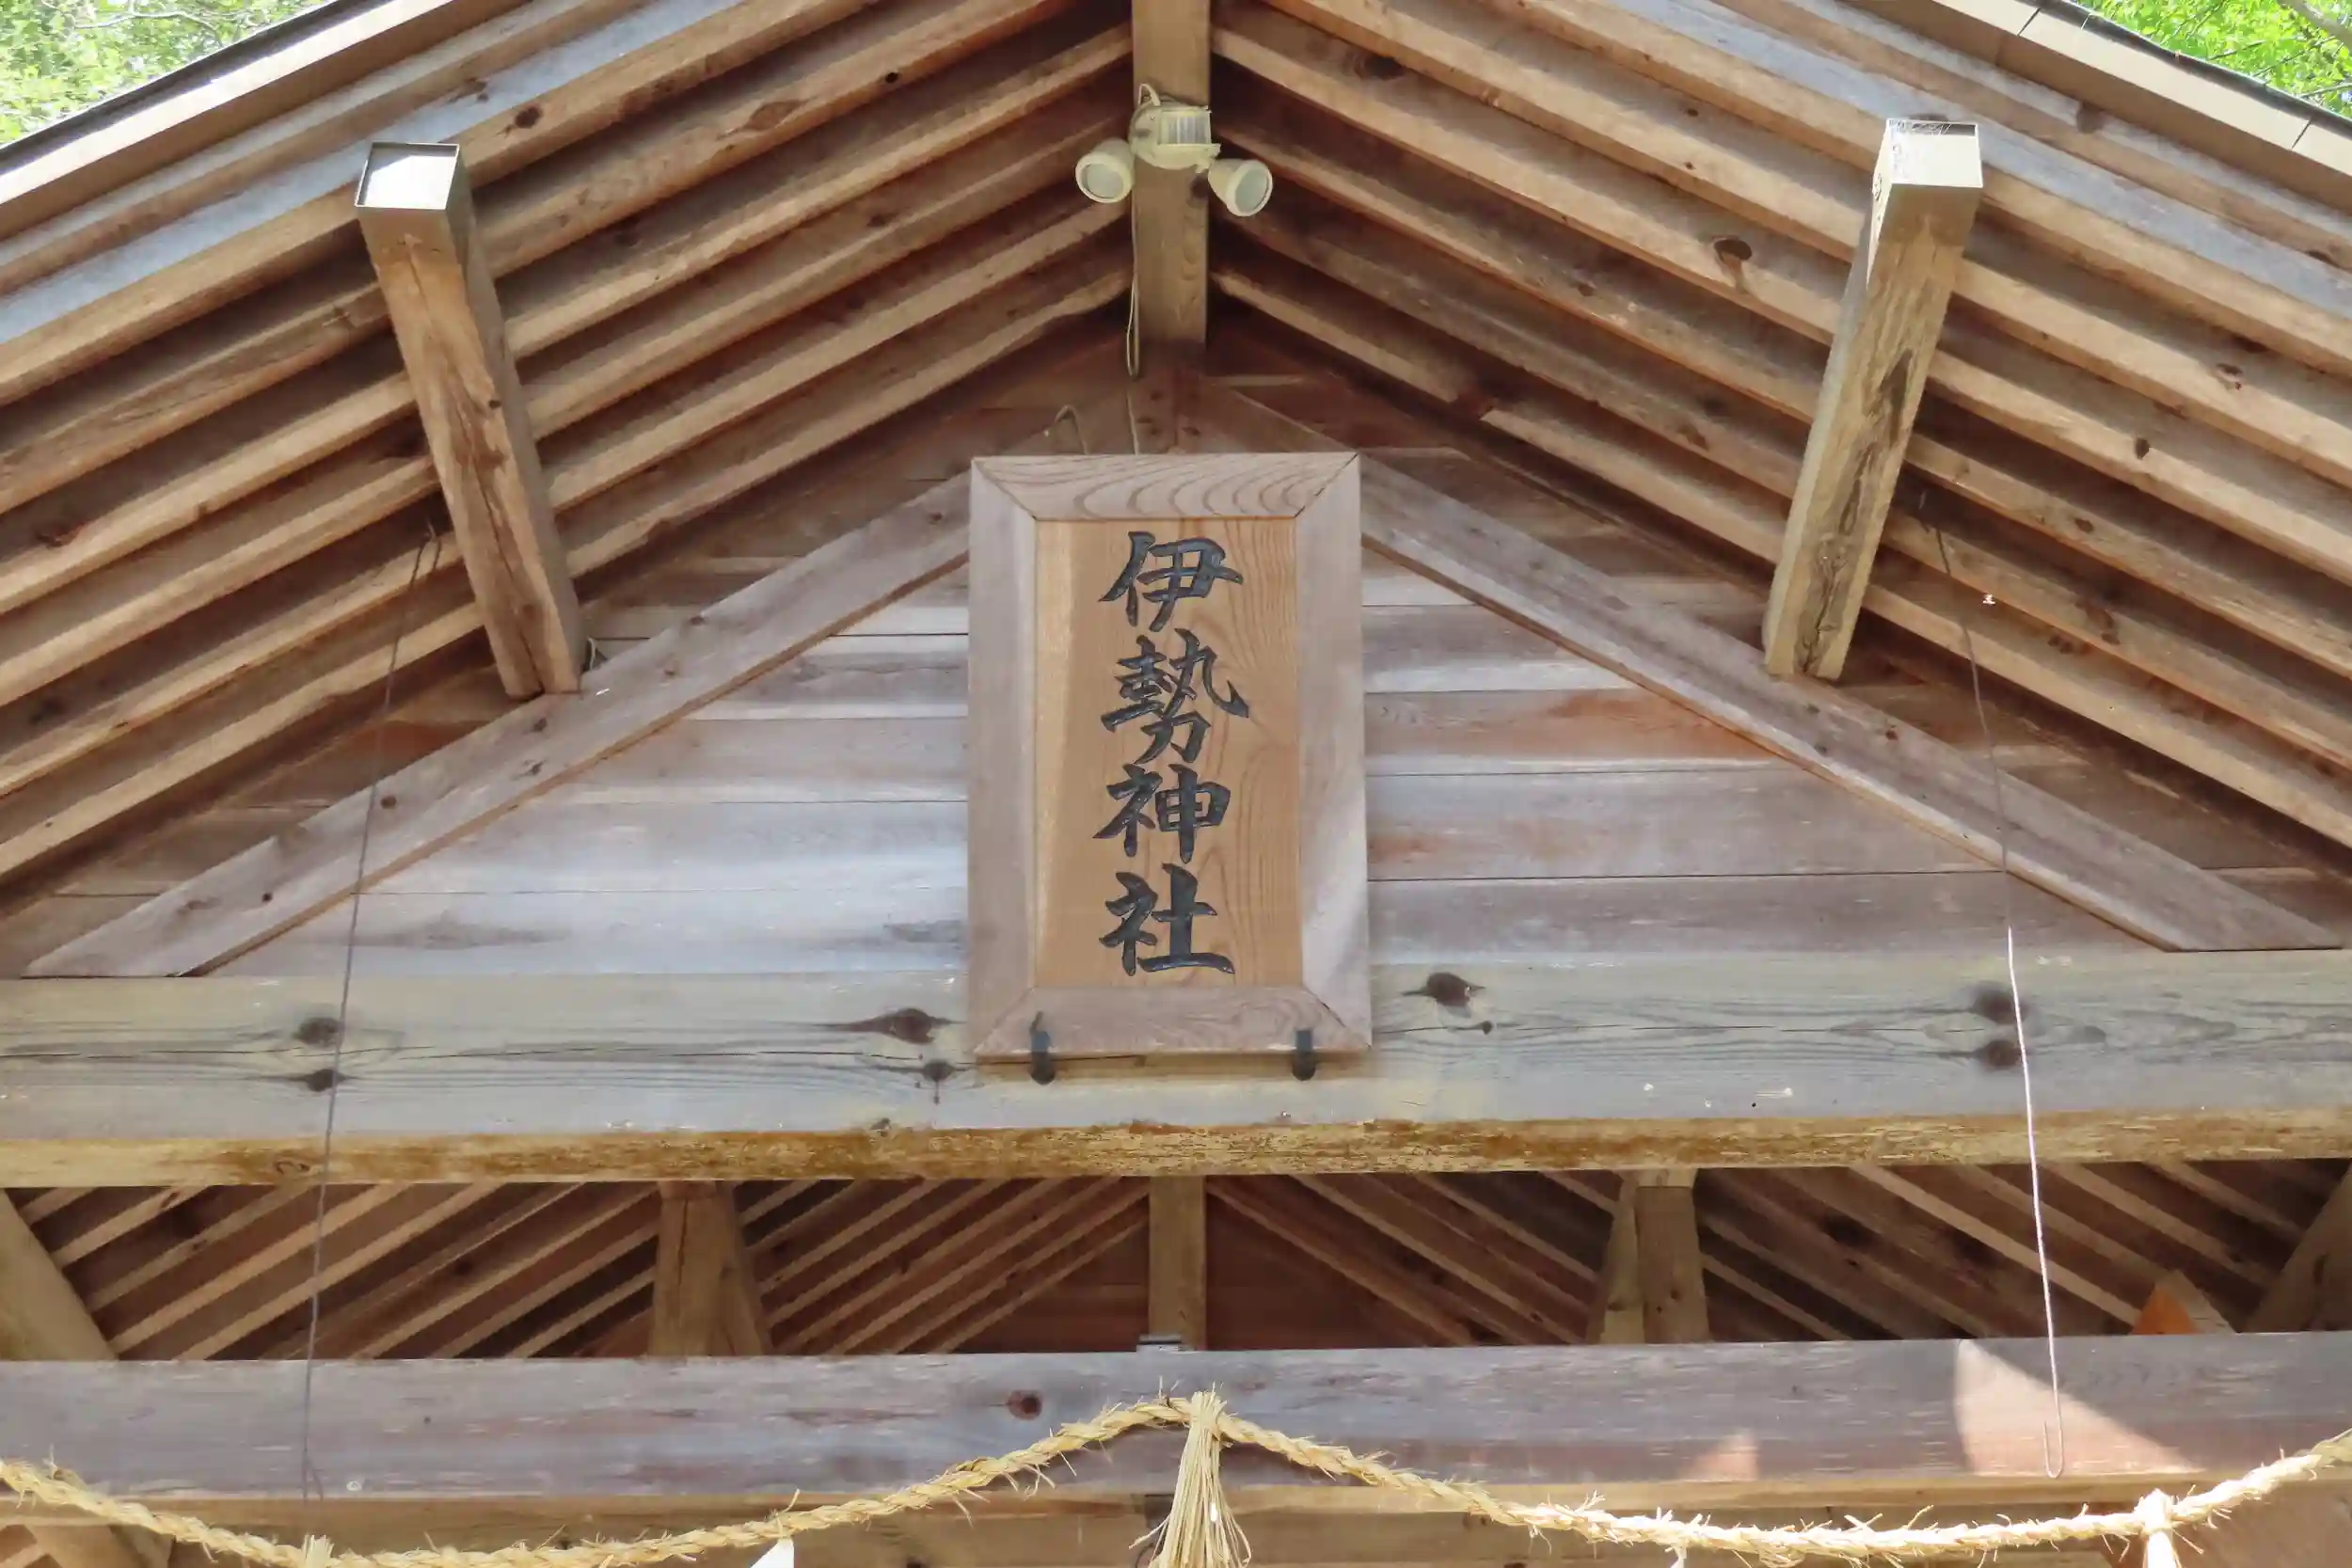 伊勢神社